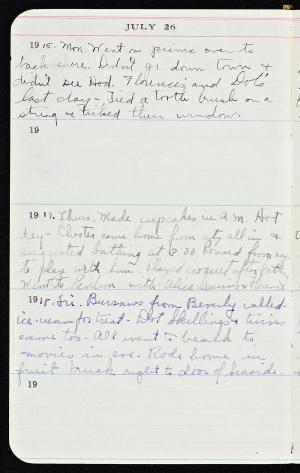 JULY 26
1915. Mon. Went on picnic over to
back shore. Didn't go down town &
didn't see Hod. Florence's and Dot's
last day - Tied a tooth brush on a
string & ticked their window.
19
1917. Thurs. Made cupcakes in A.M. Hot
day - Chester came home from city all in &
suggested bathing at 3.30. Rowed
to play with him. Played croquet after
Went to Pavilion with Alice
1918. Fri. Bursaws from Beverly called.
ice-cream for treat. Dot Skillings & twins
came too. All went to beach to
movies in eve. Rode home in
fruit truck right to door of Seaside.
19